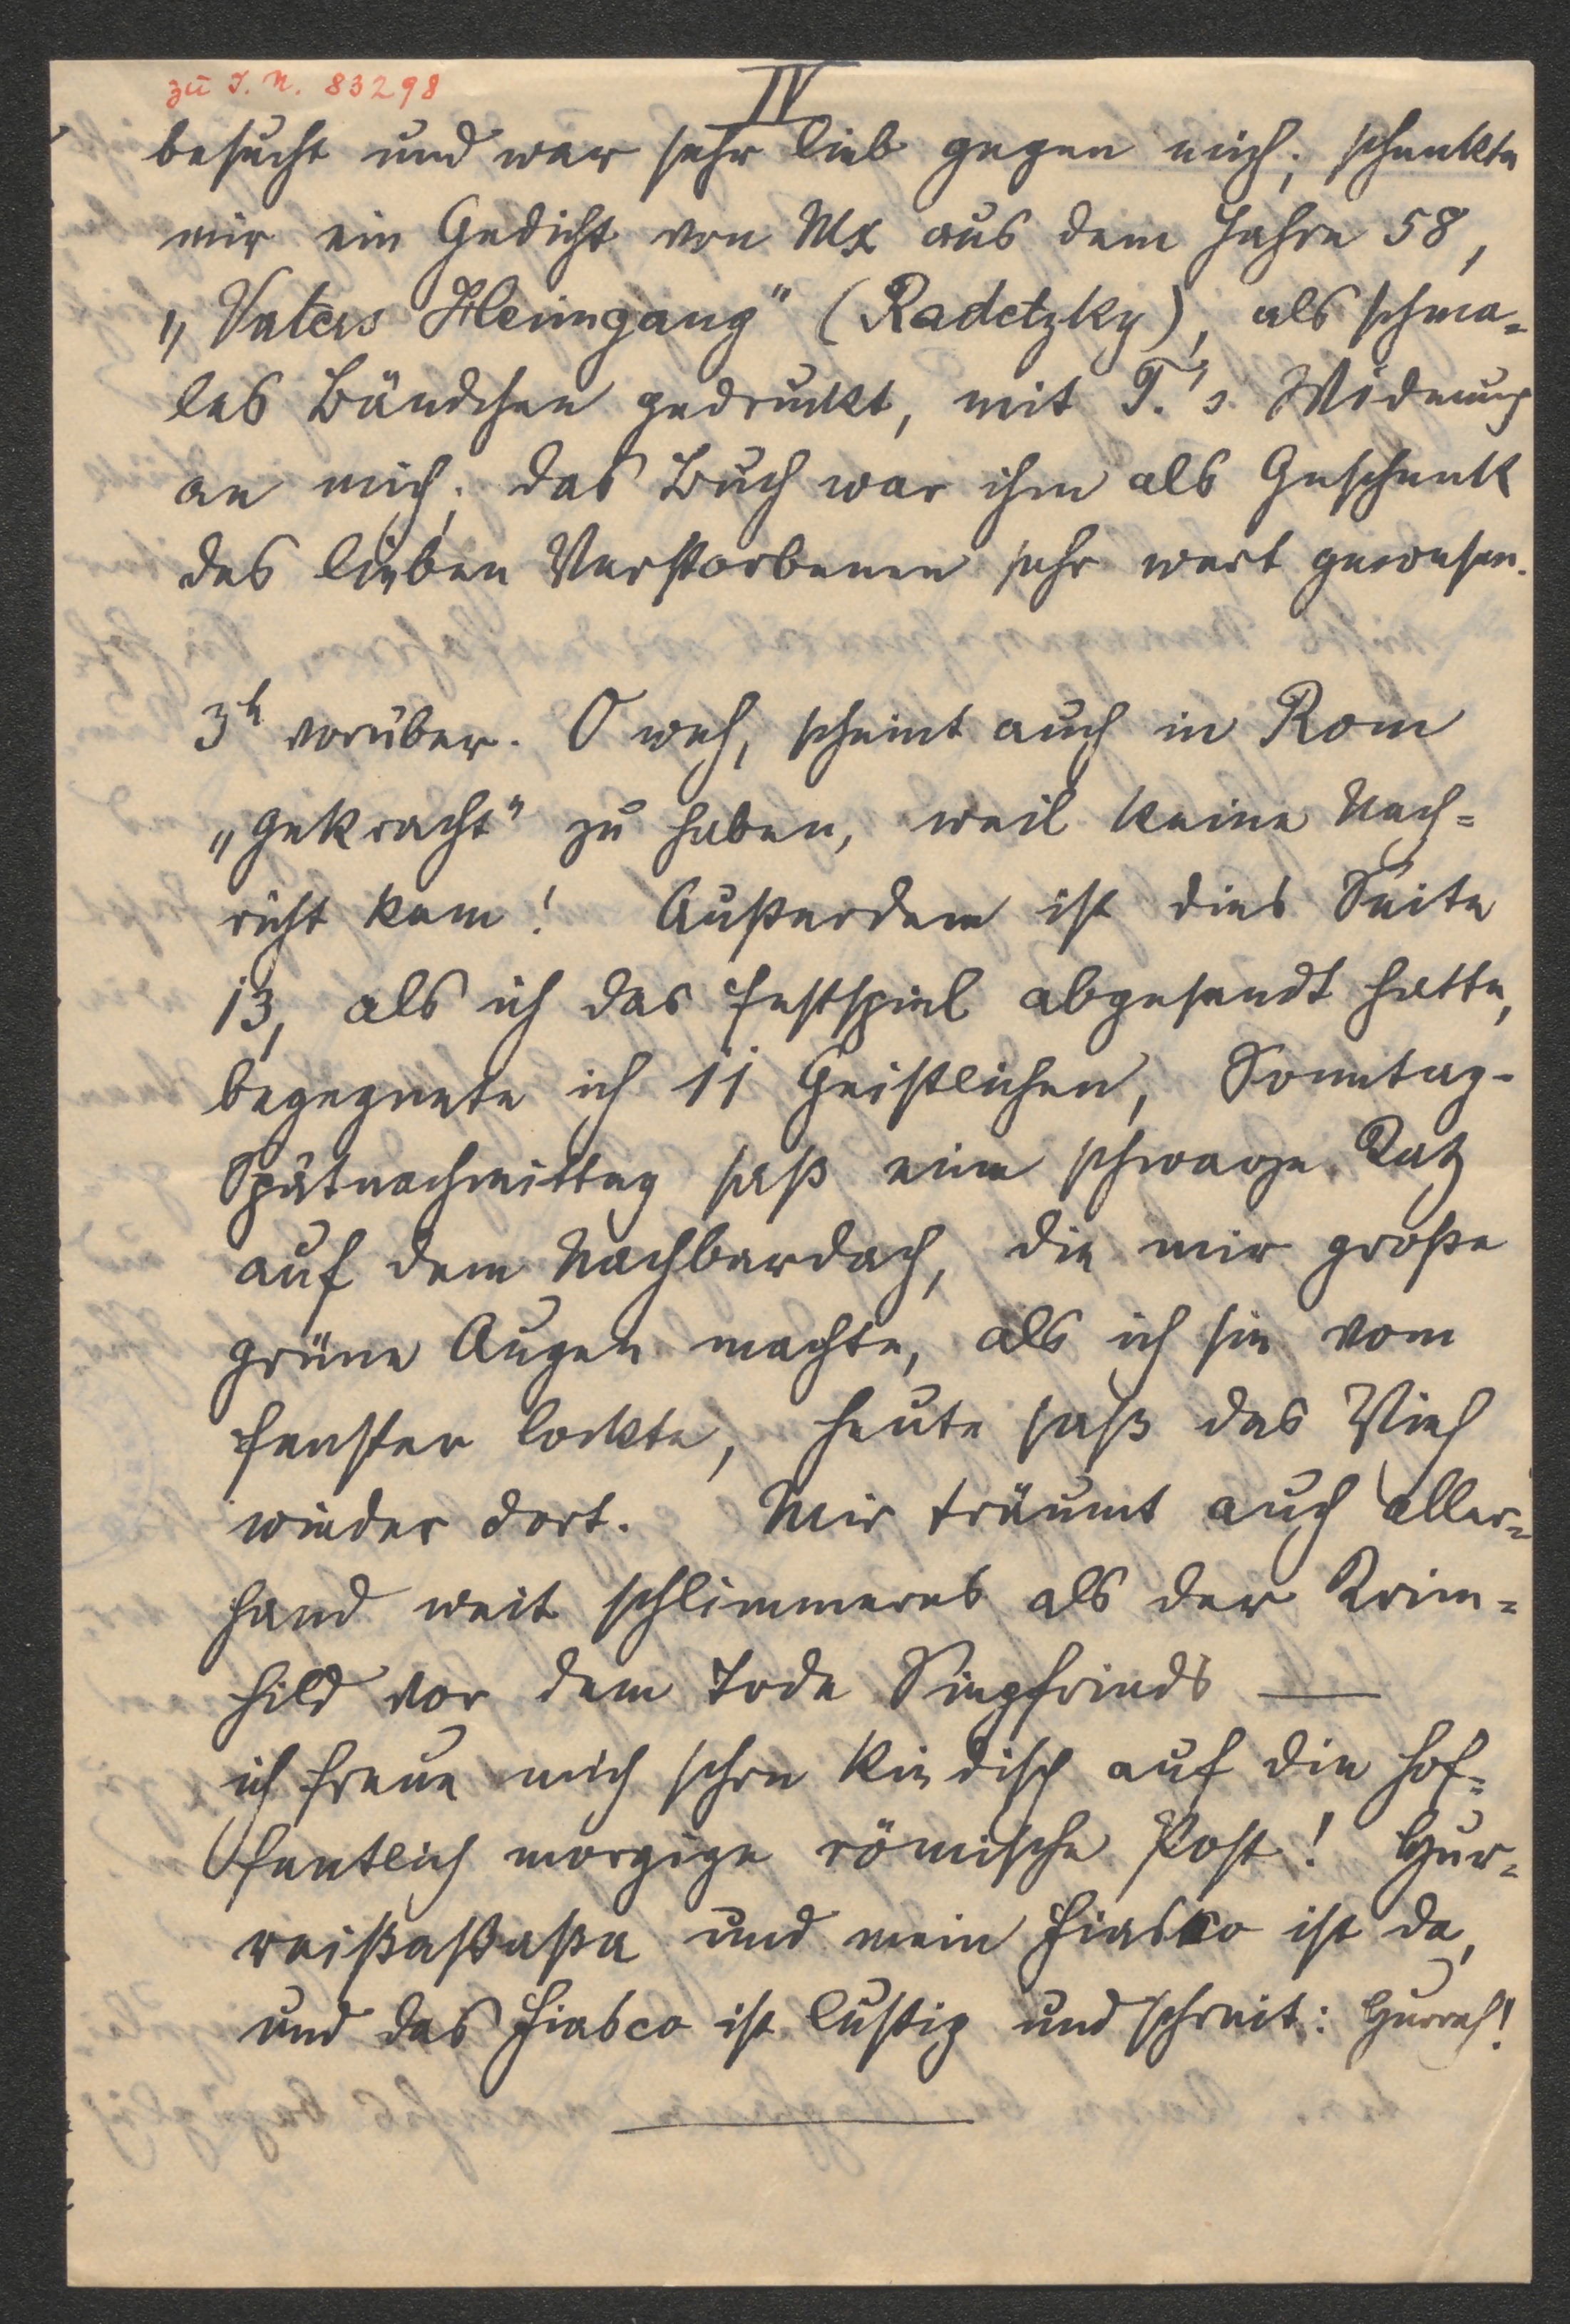 zu I. N. 83298
IV
besucht und war sehr lieb gegen mich; schenkte
mir ein Gedicht von Mx aus dem Jahre 58,
„Vaters Heimgang" (Radetzky), als schma=
les Bändchen gedruckt, mit T.'s Widmung
an mich; das Buch war ihm als Geschenk
des lieben Verstorbenen sehr wert gewesen.
3h vorüber. O weh, scheint auch in Rom
„gekracht" zu haben, weil keine Nach=
richt kam! Außerdem ist dies Seite
13, als ich das Festspiel abgesandt hatte,
begegnete ich 11 Geistlichen, Sonntag-
Spätnachmittag saß eine schwarze Katz
auf dem Nachbardach, die mir große
grüne Augen machte, als ich sie vom
Fenster lockte, heute saß das Vieh
wieder dort. Mir träumt auch aller=
hand weit schlimmeres als der Krim=
hild vor dem Tode Siegfrieds —
ich freue mich schon kindisch auf die hof=
fentlich morgige römische Post! Hur=
und mein Fiasco ist da,
und das Fiasco ist lustig und schreit: Hurrah!